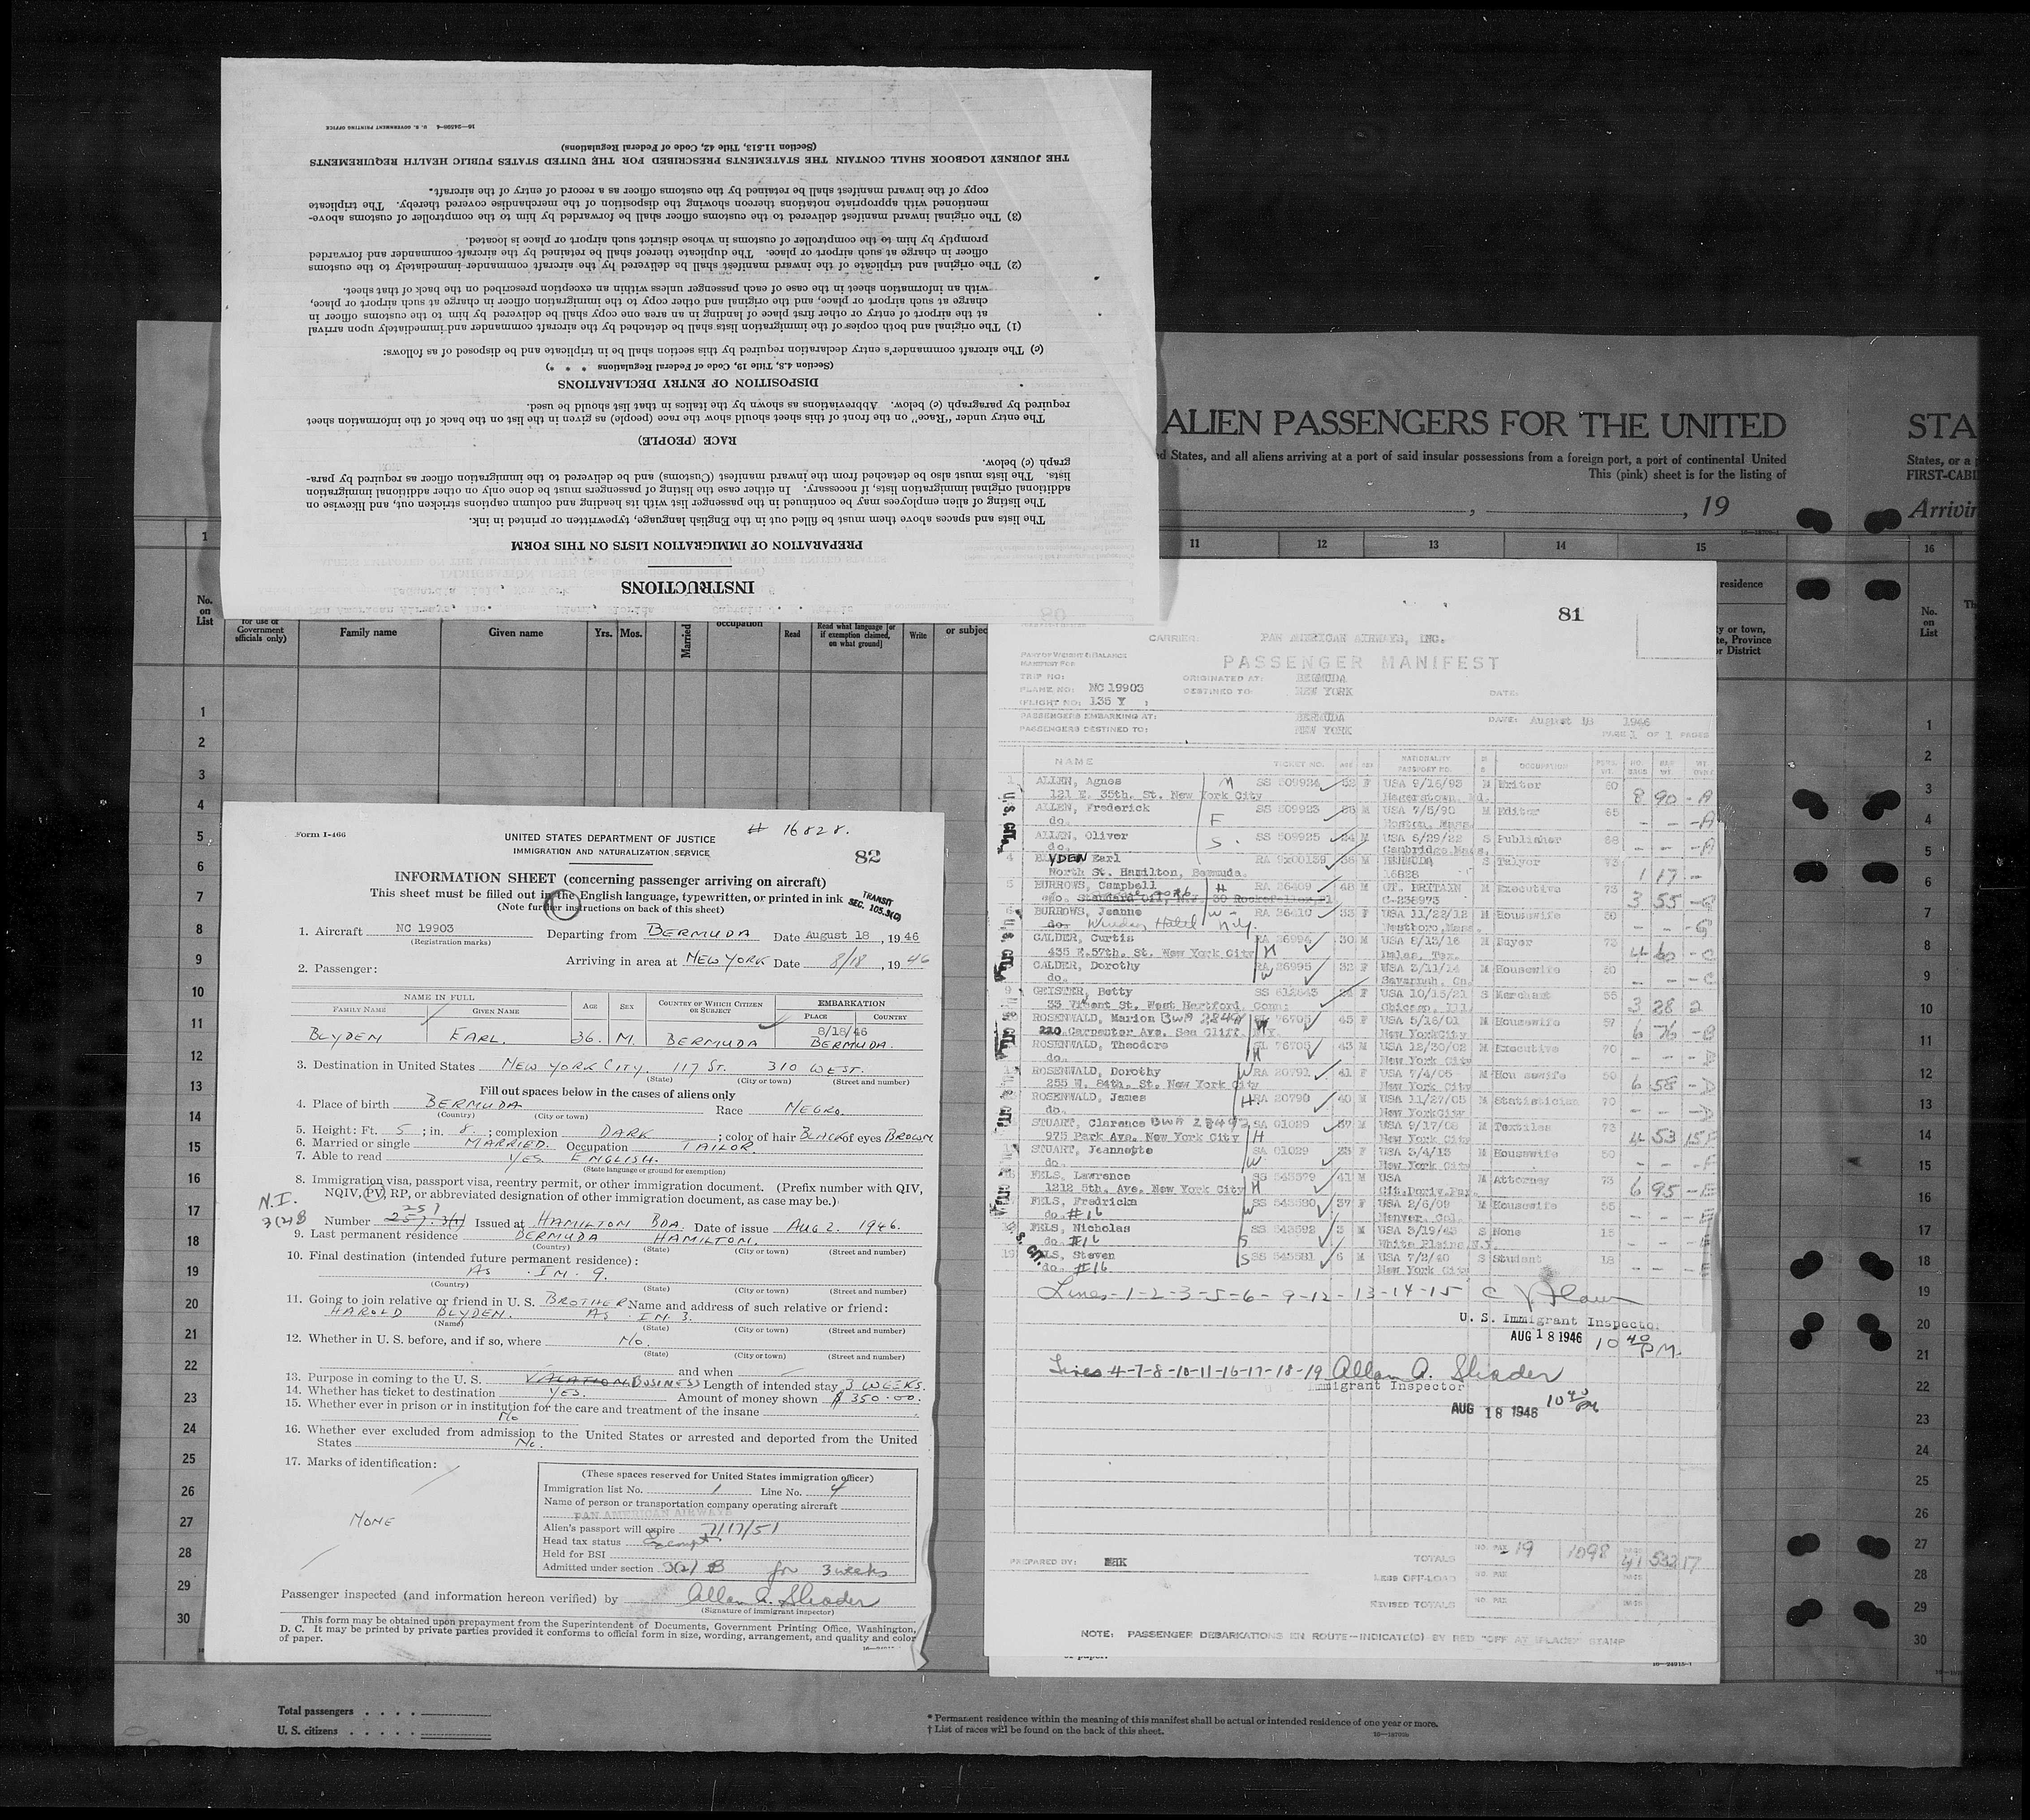 INSTRUCTIONS
PREPARATION OF IMMIGRATION LISTS ON THIS FORM
The lists and spaces above them must be filled out in the English language, typewritten or printed in ink.
The listing of alien employees may be continued in the passenger list with its heading and column captions stricken out, and likewise on
additional original immigration lists, if necessary. In either case the listing of passengers must be done only on other additional immigration
lists. The lists must also be detached from the inward manifest (Customs) and be delivered to the immigration officer as required by para-
graph (c) below.
RACE (PEOPLE)
The entry under "Race" on the front of this sheet should show the race (people) as given in the list on the back of the information sheet
required by paragraph (c) below. Abbreviations as shown by the italics in that list should be used.
DISPOSITION OF ENTRY DECLARATIONS
(Section 4.8, Title 19, Code of Federal Regulations * * *)
(c) The aircraft commander's entry declaration required by this section shall be in triplicate and be disposed of as follows:
(1) The original and both copies of the immigration lists shall be detached by the aircraft commander and immediately upon arrival
at the airport of entry or other first place of landing in an area one copy shall be delivered by him to the customs officer in
charge at such airport or place, and the original and other copy to the immigration officer in charge at such airport or place,
with an information sheet in the case of each passenger unless within an exception prescribed on the back of that sheet.
(2) The original and triplicate of the inward manifest shall be delivered by the aircraft commander immediately to the customs
officer in charge at such airport or place. The duplicate thereof shall be retained by the aircraft commander and forwarded
promptly by him to the comptroller of customs in whose district such airport or place is located.
(3) The original inward manifest delivered to the customs officer shall be forwarded by him to the comptroller of customs above-
mentioned with appropriate notations thereon showing the disposition of the merchandise covered thereby. The triplicate
copy of the inward manifest shall be retained by the customs officer as a record of entry of the aircraft.
THE JOURNEY LOGBOOK SHALL CONTAIN THE STATEMENTS PRESCRIBED FOR THE UNITED STATES PUBLIC HEALTH REQUIREMENTS
(Section 11.513, Title 42, Code of Federal Regulations)
16—24898-4 U. S. GOVERNMENT PRINTING OFFICE
ALIEN PASSENGERS FOR THE UNITED
STA
d States, and all aliens arriving at a port of said insular possessions from a foreign port, a port of continental United
This (pink) sheet is for the listing of
States, or a
FIRST-CABI
, , 19
Arrivin
1 11 12 13 14 15 16
No. on List
for use of Government officials only)
Family name
Given name
Yrs. Mos.
Married
occupation
Read
Read what language [or if exemption claimed, on what ground]
Write
or subjec
residence
y or town,
te, Province
r District
No. on List
Form I-466
# 16828.
UNITED STATES DEPARTMENT OF JUSTICE
IMMIGRATION AND NATURALIZATION SERVICE
82
INFORMATION SHEET (concerning passenger arriving on aircraft)
This sheet must be filled out in the English language, typewritten, or printed in ink
(Note further instructions on back of this sheet)
TRANSIT
SEC. 105.3(C)
1. Aircraft NC 19903 Departing from BERMUDA Date August 18, 1946
(Registration marks)
Arriving in area at NEW YORK Date 8/18, 1946
2. Passenger:
NAME IN FULL
FAMILY NAME GIVEN NAME AGE SEX COUNTRY OF WHICH CITIZEN OR SUBJECT EMBARKATION PLACE COUNTRY
8/18/46
BLYDEN EARL. 36. M. BERMUDA BERMUDA.
3. Destination in United States NEW YORK CITY. 117 ST. 310 WEST.
(State) (City or town) (Street and number)
Fill out spaces below in the cases of aliens only
4. Place of birth BERMUDA Race NEGRO.
(Country) (City or town)
5. Height: Ft. 5; in. 8.; complexion DARK; color of hair BLACK of eyes BROWN
6. Married or single MARRIED. Occupation TAILOR.
7. Able to read YES. ENGLISH.
(State language or ground for exemption)
8. Immigration visa, passport visa, reentry permit, or other immigration document. (Prefix number with QIV,
NQIV, PV, RP, or abbreviated designation of other immigration document, as case may be.)
N.I.
3(2)B
251
Number 257.3(1) Issued at HAMILTON BDA. Date of issue AUG 2. 1946.
9. Last permanent residence BERMUDA HAMILTON.
(Country) (State) (City or town) (Street and number)
10. Final destination (intended future permanent residence):
AS IN 9.
(Country) (State) (City or town) (Street and number)
11. Going to join relative or friend in U. S. BROTHER Name and address of such relative or friend:
HAROLD BLYDEN. AS IN 3.
(Name) (State) (City or town) (Street and number)
12. Whether in U. S. before, and if so, where No.
(State) (City or town) (Street and number)
and when
13. Purpose in coming to the U. S. VACATION BUSINESS Length of intended stay 3 WEEKS.
14. Whether has ticket to destination YES. Amount of money shown $350.00.
15. Whether ever in prison or in institution for the care and treatment of the insane
No
16. Whether ever excluded from admission to the United States or arrested and deported from the United
States No.
17. Marks of identification:
NONE
(These spaces reserved for United States immigration officer)
Immigration list No. 1 Line No. 4
Name of person or transportation company operating aircraft
PAN AMERICAN AIRWAYS
Alien's passport will expire 7/17/51
Head tax status Exempt
Held for BSI
Admitted under section 3(2) B for 3 weeks
Passenger inspected (and information hereon verified) by Allan A. Shader
(Signature of immigrant inspector)
This form may be obtained upon prepayment from the Superintendent of Documents, Government Printing Office, Washington,
D. C. It may be printed by private parties provided it conforms to official form in size, wording, arrangement, and quality and color
of paper.
81
CARRIER: PAN AMERICAN AIRWAYS, INC.
PART OF WEIGHT & BALANCE
MANIFEST FOR
PASSENGER MANIFEST
TRIP NO: ORIGINATED AT: BERMUDA
PLANE NO: NC 19903 DESTINED TO: NEW YORK DATE:
FLIGHT NO: 135 Y
PASSENGERS EMBARKING AT: BERMUDA DATE: August 18 1946
PASSENGERS DESTINED TO: NEW YORK PAGE 1 OF 1 PAGES
NAME TICKET NO. AGE SEX NATIONALITY PASSPORT NO. OCCUPATION
ALLEN, Agnes M SS 509924 52 F USA 9/16/93 M Writer 60
121 E. 35th. St. New York City Hagerstown, Md. 8 90 - A
ALLEN, Frederick SS 509923 M USA 7/5/90 M Editor 65
do. F Boston, Mass. - - - A
ALLEN, Oliver SS 509925 24 M USA 6/29/22 S Publisher 68
do. S. Cambridge, Mass. - - - A
4 BLYDEN Earl RA 36 M BERMUDA S Talyor 73
North St. Hamilton, Bermuda. 16828 1 17 -
5 BURROWS, Campbell H RA 26409 48 M GT. BRITAIN M Executive 73
Standard Oil, N.J. 30 Rockefeller Pl C-238973 3 55 - G
6 BURROWS, Jeanne W - RA 26410 33 F USA 11/22/12 M Housewife 50
do. Windsor Hotel N.Y. Westboro, Mass. - - - G
CALDER, Curtis RA 26994 30 M USA 8/13/16 M Buyer 73
435 E. 57th. St. New York City H Dalas, Tex. 4 60 - C
CALDER, Dorothy RA 26995 32 F USA 3/11/14 M Housewife 50
do. W Savannah, Ga. - - - C
9 GEISTER, Betty SS 512643 24 F USA 10/15/21 S Merchant 55
33 Vincent St. West Hartford, Conn. Chicago, Ill. 3 28 2
ROSENWALD, Marion 76705 45 F USA 5/16/01 M Housewife 57
220 Carpenter Ave. Sea Cliff, N.Y. W New York City 6 76 - B
ROSENWALD, Theodore 76705 43 M USA 12/30/02 M Executive 90
do. H New York City
ROSENWALD, Dorothy W RA 20791 41 F USA 7/4/05 M Housewife 50
255 W. 84th. St. New York City New York City 6 58 - A
ROSENWALD, James H RA 20790 40 M USA 11/27/05 M Statistician 70
do. New York City - - - A
STUART, Clarence SA 01029 37 M USA 9/17/08 M Textiles 73
975 Park Ave. New York City H New York City 4 53 15
STUART, Jeannette SA 01029 33 F USA 3/4/13 M Housewife 50
do. W New York City
FELS, Lawrence SS 543579 41 M USA M Attorney 73
1212 5th. Ave. New York City H 6 95 - E
FELS, Fredricka SS 543580 37 F USA 2/6/09 M Housewife 55
do. #16 W Denver, Col.
FELS, Nicholas SS 3 M USA 3/19/43 S None 15
do. #16 S White Plains, N.Y.
19 FELS, Steven SS 543581 6 M USA 7/2/40 S Student 18
do. #16 S New York City
U.S. CIT.
Lines-1-2-3-5-6-9-12-13-14-15
U. S. Immigrant Inspector
AUG 18 1946 10 40 P.M.
Lines 4-7-8-10-11-16-17-18-19 Allan A. Shader
Immigrant Inspector
AUG 18 1946 10 40 PM
PREPARED BY: TOTALS 19 1098 41 532 17
LESS OFF-LOAD
REVISED TOTALS
NOTE: PASSENGER DEBARKATIONS EN ROUTE—INDICATE(D) BY RED "OFF AT (PLACE)" STAMP
of paper.
16—24915-1
Total passengers . . . .
U. S. citizens . . . . .
* Permanent residence within the meaning of this manifest shall be actual or intended residence of one year or more.
† List of races will be found on the back of this sheet.